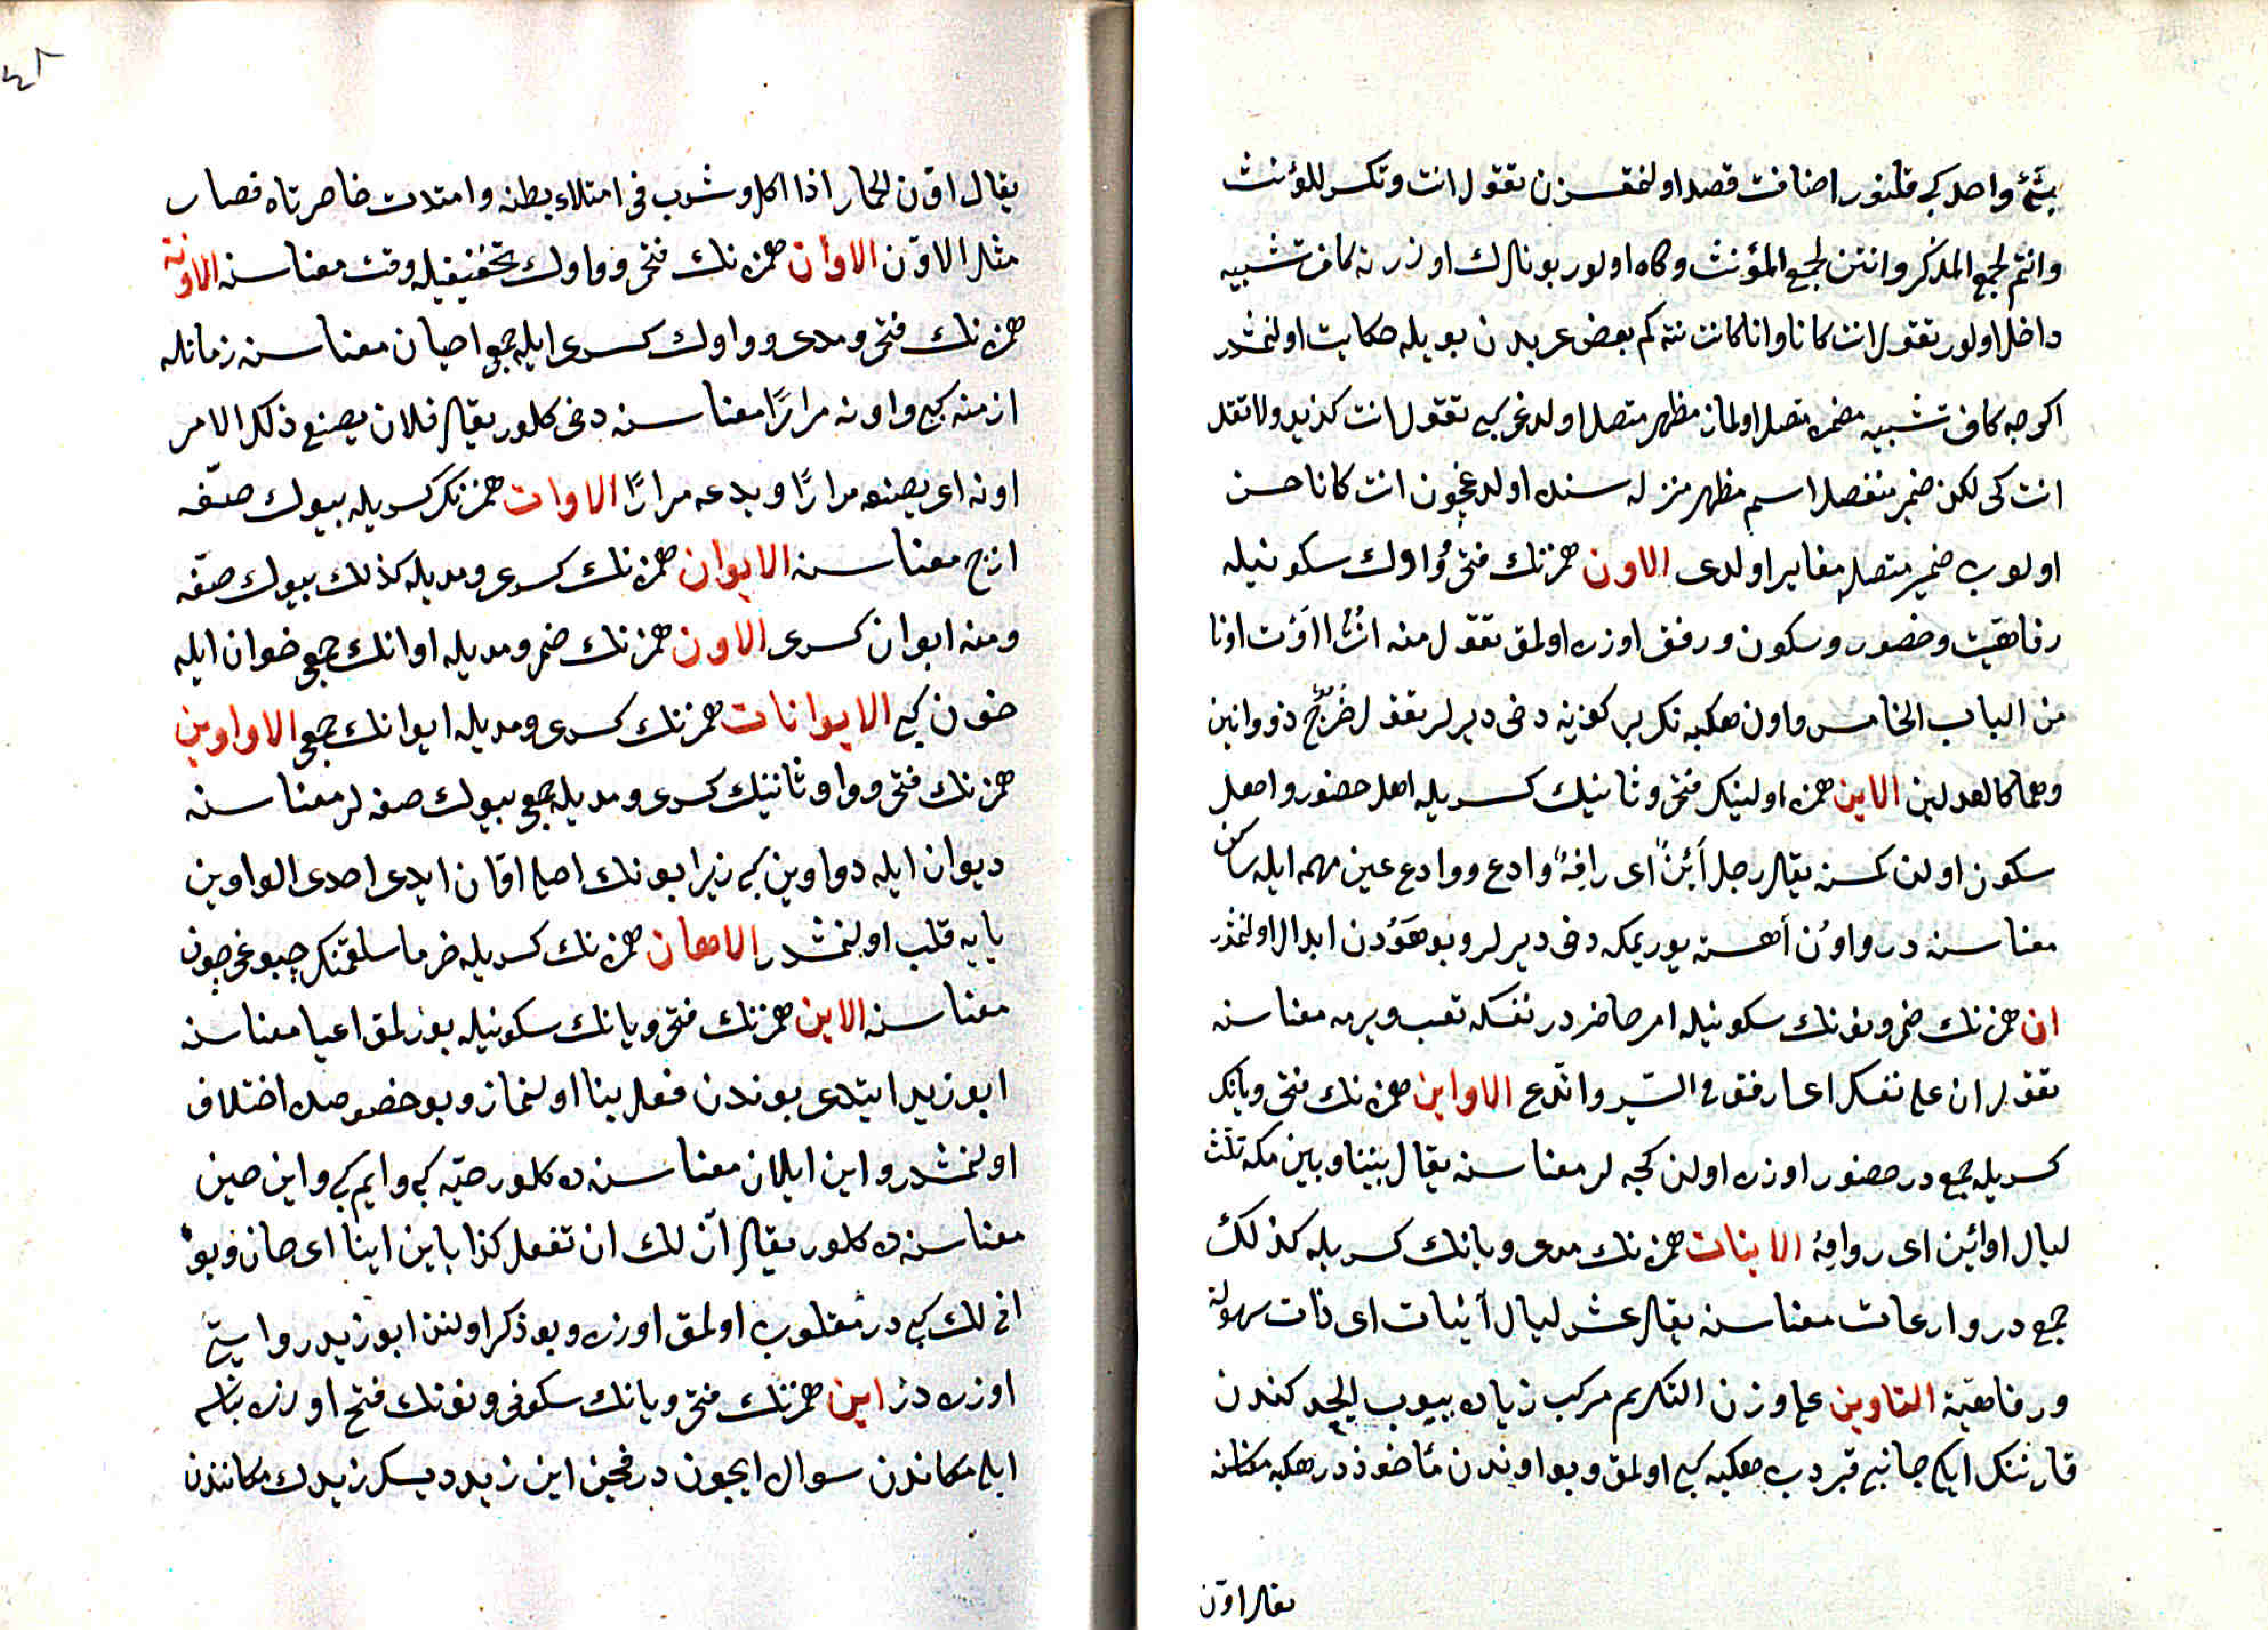 شیء واحد کبی قلنور اضافت قصد اولنمقسزن تقول انت وتکسر للمؤنث
وانتم لجمع المذکر وانتن لجمع المؤنث وکاه اولور بونلرك اوزرنه کاف تشبیه
داخل اولور تقول انت کانا وانا کانت نته کم بعض عربدن بویله حکایت اولنمشدر
اکرچه کاف تشبیه مضمره متصل اولماز مظهره متصل اولدغی کبی تقول انت کزید ولا تقل
انت کی لکن ضمیر منفصل اسم مظهر منزله سنده اولدغیچون انت کانا حسن
اولوب ضمیر متصله مغایر اولدی الاون همزه نك فتحی و واوك سکونیله
رفاهیت وحضور وسکون ورفق اوزره اولمق تقول منه انت اؤنت اونا
من الباب الخامس واون هکبه نك بر کوزینه دخی دیرلر تقول خرج ذو اونین
وهما کالعدلین الاین همزه اولینك فتحی وثانینك کسریله اهل حضور واهل
سکون اولن کمسنه یقال رجل آئن ای رافه وادع و وادع عین مهمله ایله ساکن
معناسنه در واون آهسته یوریمکه دخی دیرلر وبو هودن ابدال اولنمشدر
ان همزه نك ضمی ونونك سکونیله امر حاضردر نفسکه تعب ویرمه معناسنه
تقول ان علی نفسك ای ارفق فی السیر واتدع الاواین همزه نك فتحی ویانك
کسریله جمعدر حضور اوزره اولن کیجه لر معناسنه یقال بیننا وبین مکه ثلث
لیال اوائن ای روافه الاینات همزه نك مدی ویانك کسریله کذلك
جمعدر وادعات معناسنه یقال عشر لیال آئنات ای ذات سهولة
ورفاهیة التاوین علی وزن التکریم مرکب زیاده ییوب ایچوب کندن
قارننك ایکی جانبی قبردب هکبه کبی اولمق وبو اوندن مأخوذدر هکبه معناسنه
یقال اون
٤٨
یقال اون الحمار اذا اکل وشرب فی امتلاء بطنه وامتدت خاصرتاه فصار
مثل الاون الاوان همزه نك فتحی و واوك تخفیفیله وقت معناسنه الاونة
همزه نك فتحی ومدی و واوك کسری ایله جمعی احیان معناسنه زمانله
ازمنه کبی واونه مرارا معناسنه دخی کلور یقال فلان یصنع ذلك الامر
اونه ای یصنعه مرارا ویدعه مرارا الاوان همزه نك کسریله بیوك صفه
ازج معناسنه الایوان همزه نك کسری ومدیله کذلك بیوك صفه
ومنه ایوان کسری الاون همزه نك ضمی ومدیله اوانك جمعی خوان ایله
خون کبی الایوانات همزه نك کسری ومدیله ایوانك جمعی الاواوین
همزه نك فتحی و واو ثانینك کسری ومدیله جمعی بیوك صفه لر معناسنه
دیوان ایله دواوین کبی زیرا بونك اصلی اوان ایدی احدی الواوین
یایه قلب اولنمشدر الاهان همزه نك کسریله خرما سلقمنك چبوغیچون
معناسنه الاین همزه نك فتحی ویانك سکونیله یورلمق اعیا معناسنه
ابو زید ایتدی بوندن فعل بنا اولنماز وبو خصوصده اختلاف
اولنمشدر واین ایلان معناسنه ده کلور حیه کبی وایم کبی واین حین
معناسنه ده کلور یقال آن لك ان تفعل کذا یاین اینا ای حان وبو
انی لك کبیدر مقلوب اولمق اوزره وبو ذکر اولنن ابو زید روایتی
اوزره در این همزه نك فتحی ویانك سکونی ونونك فتح اوزره بناسی
ایله مکاندن سوال ایچوندر قچن این زید دیسك زیدك مکانندن